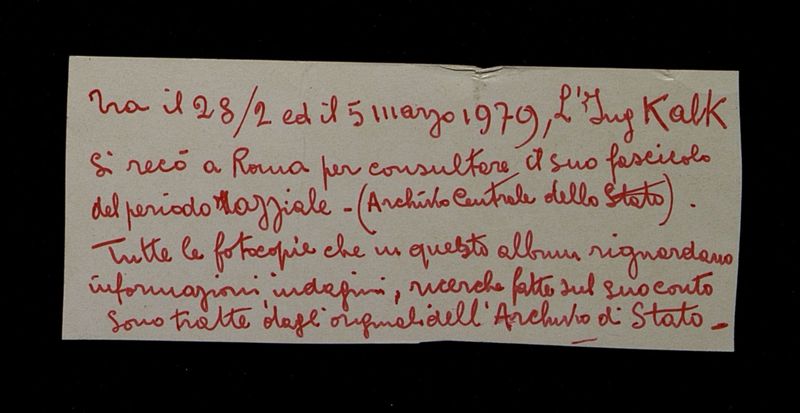 Tra il 28/2 ed il 5 marzo 1979, L'Ing Kalk
si recò a Roma per consultare il suo fascicolo
del periodo razziale - (Archivio Centrale dello Stato).
Tutte le fotocopie che in questo album riguardano
informazioni, indagini, ricerche fatte sul suo conto
sono tratte dagli originali dell'Archivio di Stato -